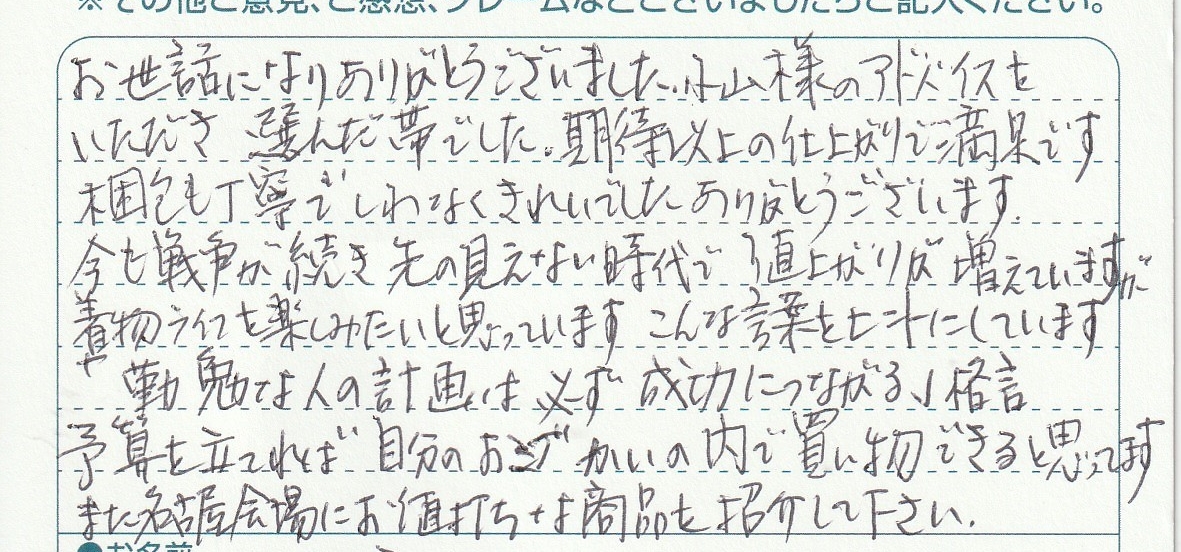 ※その他ご意見、ご感想、クレームなどございましたらご記入ください。
お世話になりありがとうございました。小山様のアドバイスを
いただき 選んだ帯でした。期待以上の仕上がりで満足です
梱包も丁寧でしわなくきれいでした ありがとうございます。
今も戦争が続き 先の見えない時代で 値上がりが 増えていますが
着物ライフを楽しみたいと思っています こんな言葉をヒントにしています
『勤勉な人の計画は 必ず 成功につながる』格言
予算を立てれば 自分のおこづかいの内で買い物できると思ってます
また名古屋会場にお値打ちな商品を紹介して下さい。
●お名前